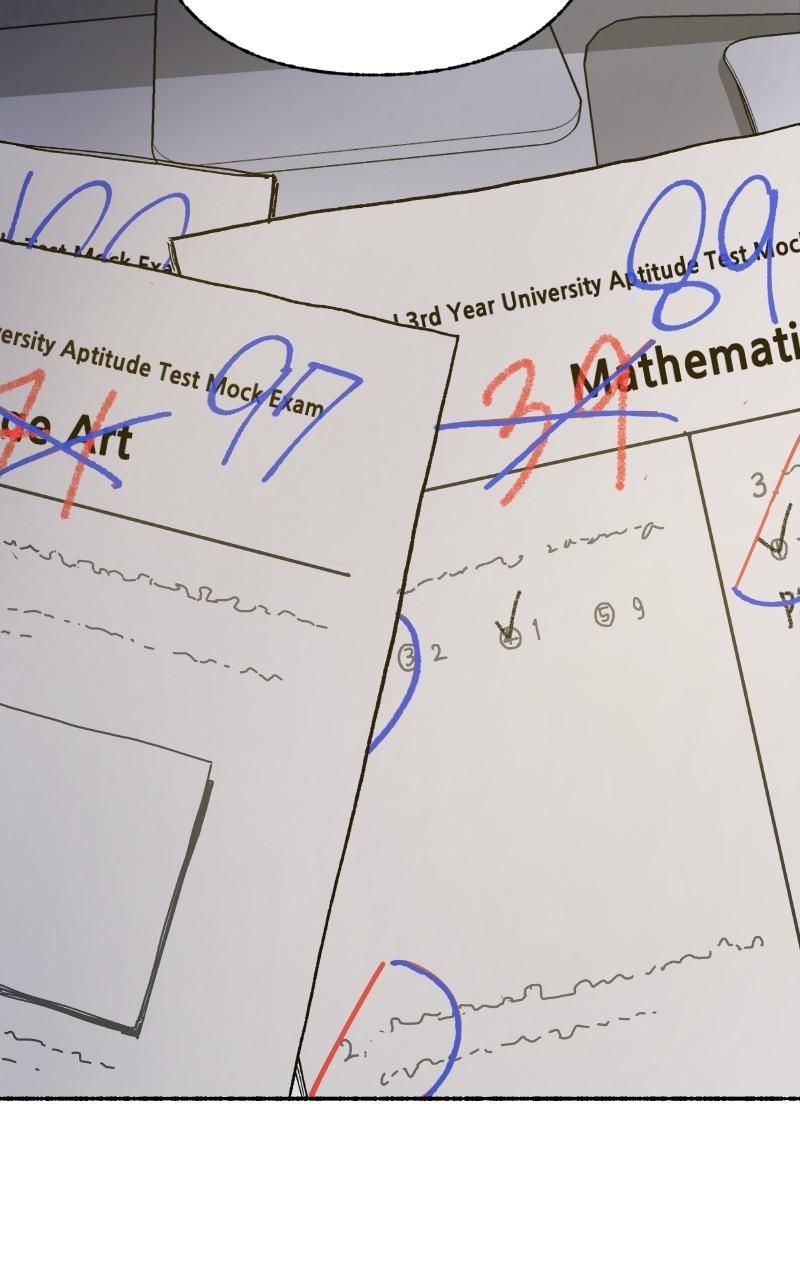 100
Test Mock Exa
89
3rd Year University Aptitude Test Moc
Mathemati
39
ersity Aptitude Test Mock Exam
97
ge Art
71
3.
③ 2 ④ 1 ⑤ 9
2.